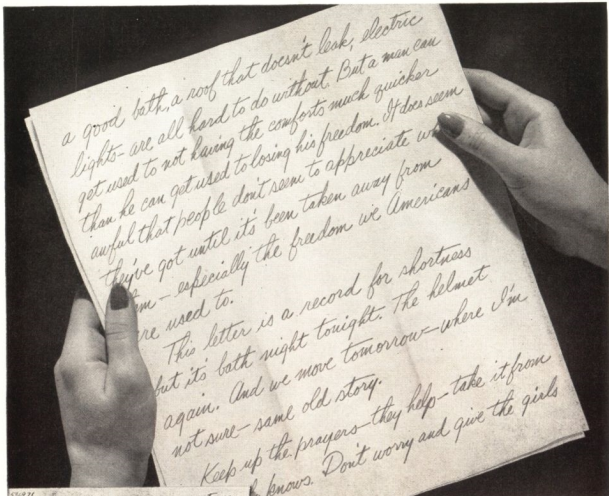 a good bath, a roof that doesn't leak, electric
lights - are all hard to do without. But a man can
get used to not having the comforts much quicker
than he can get used to losing his freedom. It does seem
awful that people don't seem to appreciate
they've got until it's been taken away from
- especially the freedom we Americans
used to.
This letter is a record for shortness
but it's bath night tonight. The helmet
again. And we move tomorrow - where I'm
not sure - same old story.
Keep up the prayers - they help - take it from
knows. Don't worry and give the girls